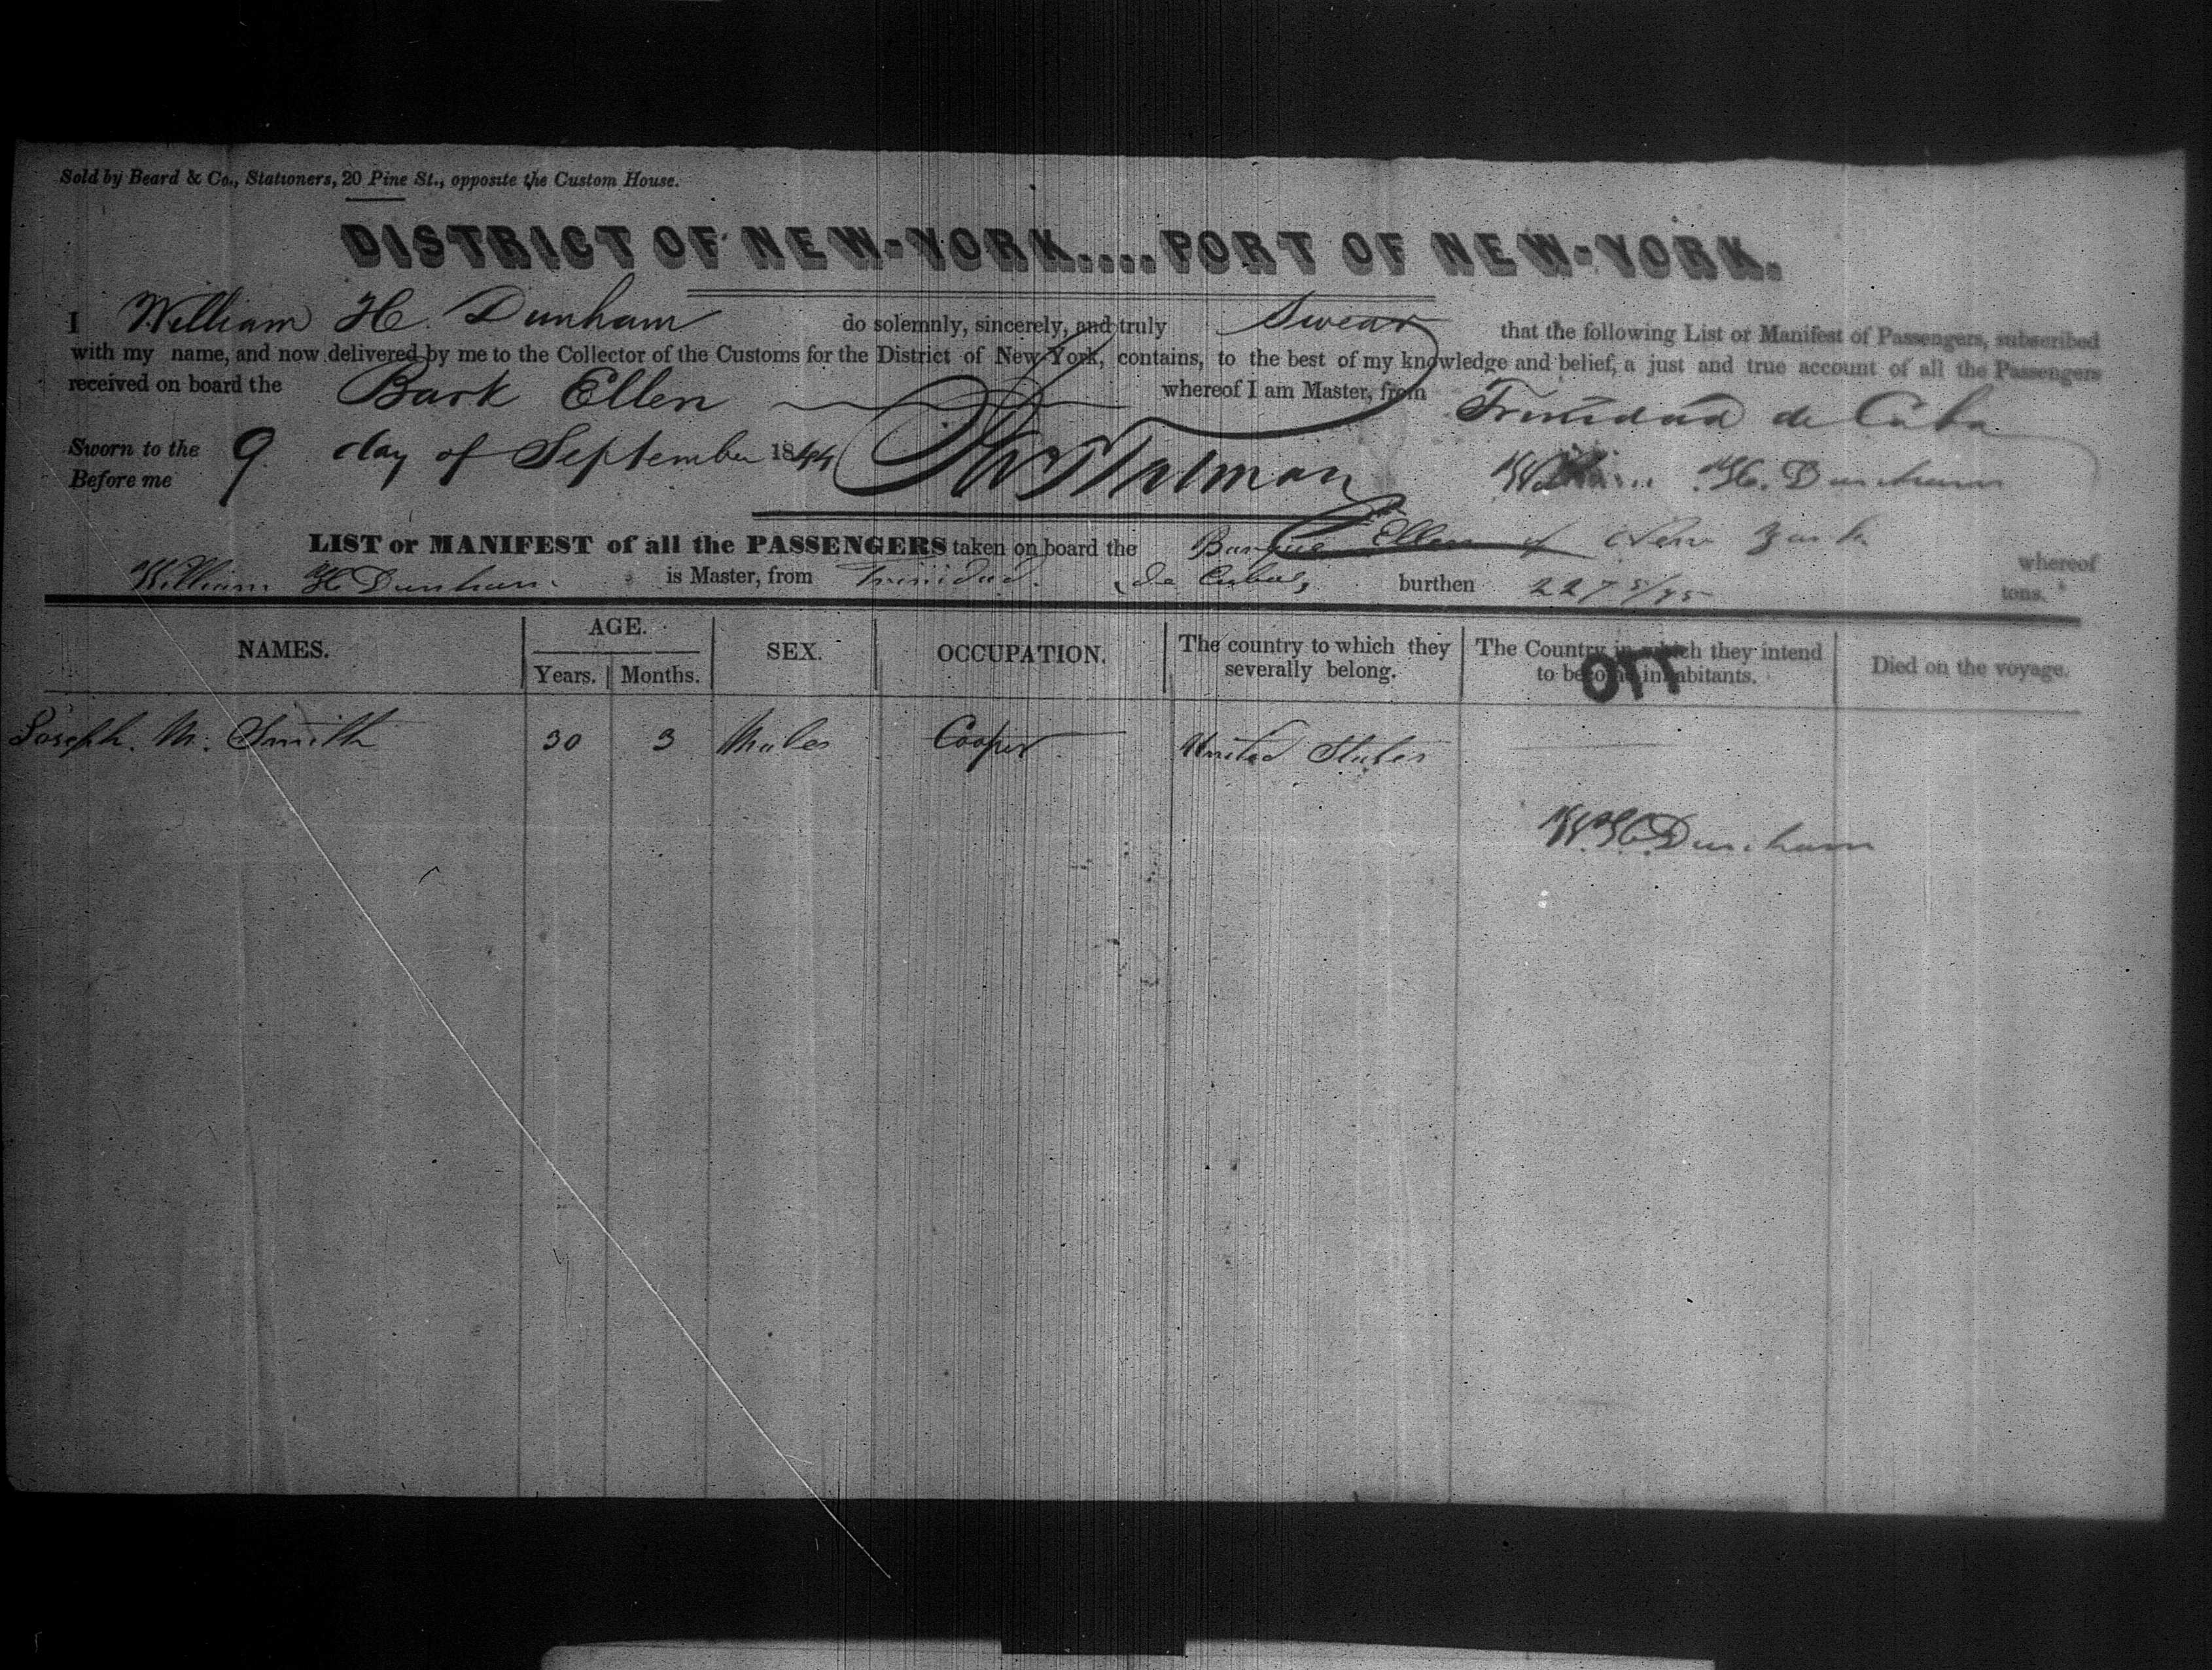 Sold by Beard & Co., Stationers, 20 Pine St., opposite the Custom House.
DISTRICT OF NEW-YORK....PORT OF NEW-YORK.
I William H. Dunham do solemnly, sincerely, and truly Swear that the following List or Manifest of Passengers, subscribed
with my name, and now delivered by me to the Collector of the Customs for the District of New York, contains, to the best of my knowledge and belief, a just and true account of all the Passengers
received on board the Bark Ellen whereof I am Master, from Trinidad de Cuba
Sworn to the 9. day of September 1844
Before me William H. Dunham
LIST or MANIFEST of all the PASSENGERS taken on board the Barque Ellen of New York whereof
William H Dunham is Master, from Trinidad de Cuba, burthen 227 tons.
NAMES. AGE. SEX. OCCUPATION. The country to which they severally belong. The Country in which they intend to become inhabitants. Died on the voyage.
Years. Months.
Joseph. M. Smith 30 3 Males Cooper United States
W. H. Dunham